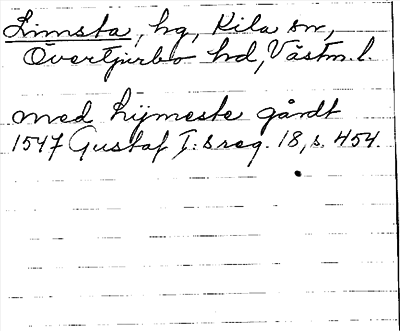 Limsta, hg, Kila sn,
Övertjurbo hd, Västm. l.
med Lijmeste gårdt
1547 Gustaf I:s reg. 18, s. 454.